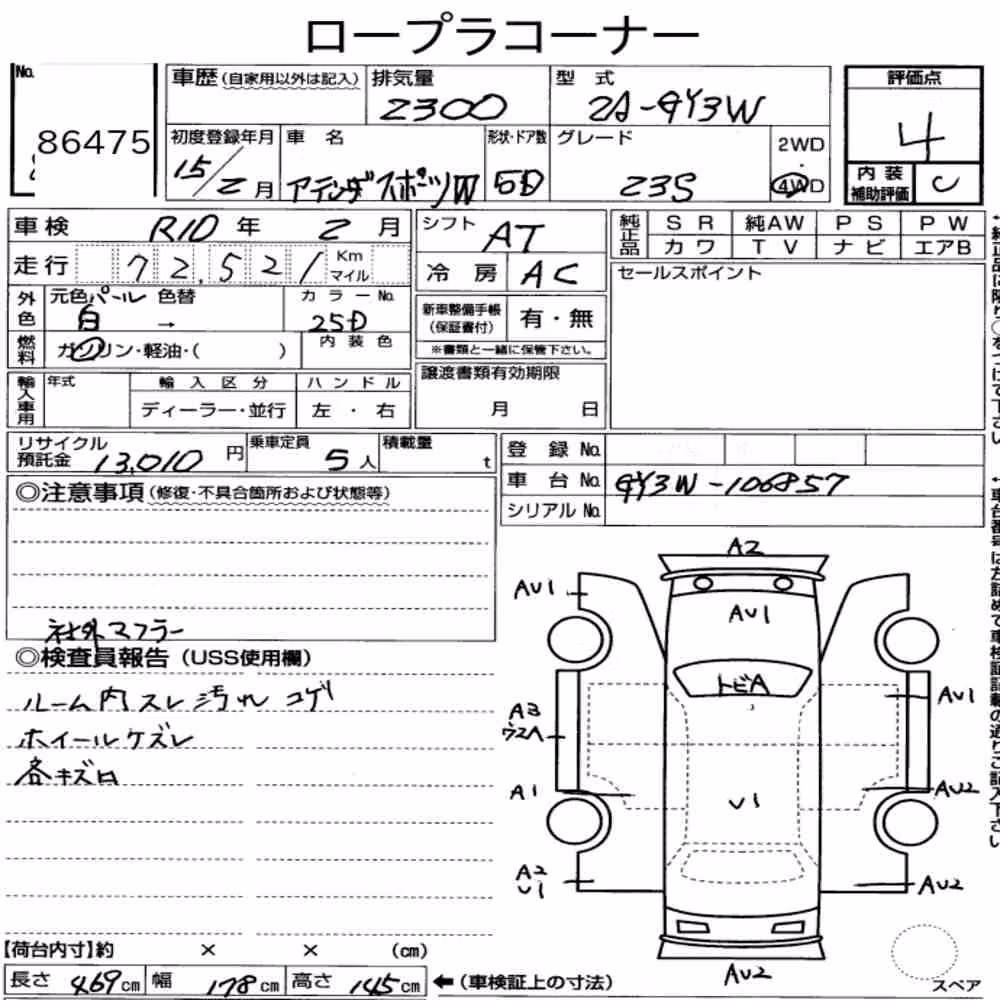 ロープラコーナー
No. 86475
車歴(自家用以外は記入) 排気量 2300 型 式 2A-GY3W 評価点 4
初度登録年月 15/2月 車 名 アテンザスポーツW 形状・ドア数 5D グレード 23S 2WD・4WD 内装補助評価 C
車検 R10年 2月 シフト AT
走行 72,521 Km マイル 冷 房 AC
純正品 SR 純AW PS PW
カワ TV ナビ エアB
セールスポイント
外色 元色パール白 色替 → カラーNo. 25D
新車整備手帳(保証書付) 有・無
※書類と一緒に保管下さい。
燃料 ガソリン・軽油・( ) 内装色
輸入車用 年式 輸入区分 ハンドル
ディーラー・並行 左・右
譲渡書類有効期限
月 日
リサイクル預託金 13,010円 乗車定員 5人 積載量 t
登 録 No.
車 台 No. GY3W-106857
シリアル No.
◎注意事項(修復・不具合箇所および状態等)
社外マフラー
◎検査員報告(USS使用欄)
ルーム内スレ汚れ コゲ
ホイールケズレ
各キズ凹
A2
AU1
AU1
トビA
A3
ウスA
AU1
A1
U1
AU2
A2
U1
AU2
AU2
スペア
【荷台内寸】約 × × (cm)
長さ 469cm 幅 178cm 高さ 145cm ←(車検証上の寸法)
↑純正品に限り○をつけて下さい
↑車台番号は左詰めで車検証記載の通りご記入下さい